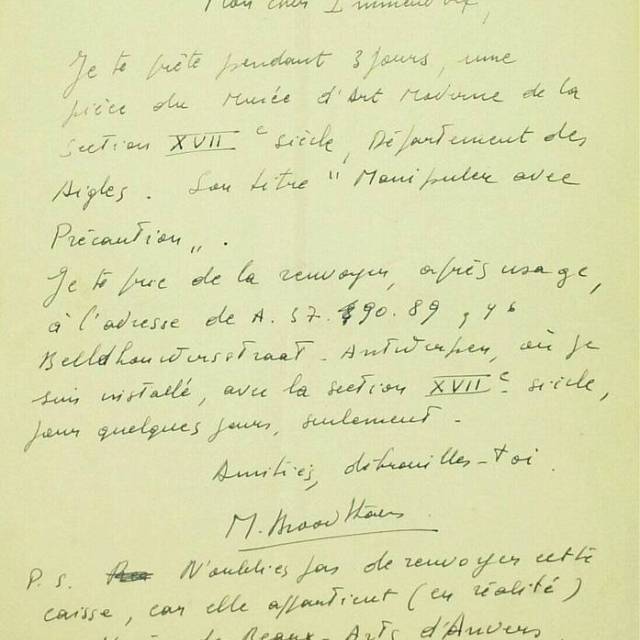 Mon cher Immendorf,
Je te prête pendant 3 jours, une
pièce du Musée d'Art Moderne de la
Section XVII e siècle, Département des
Aigles. Son titre " Manipuler avec
Précaution„.
Je te prie de la renvoyer, après usage,
à l'adresse de A. 37.90.89, 46
Beeldhouwersstraat. Antwerpen, où je
suis installé, avec la section XVII e siècle,
pour quelques jours, seulement.
Amitiés, débrouilles-toi.
M. Broodthaers
P.S. N'oublies pas de renvoyer cette
caisse, car elle appartient (en réalité)
de Beaux-Arts d'Anvers